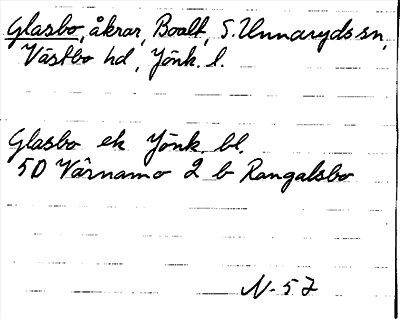 Glasbo, åkrar, Boalt, S. Unnaryds sn,
Västbo hd, Jönk. l.
Glasbo ek Jönk. bl.
5D Värnamo 2 b Rangalsbo
N-57